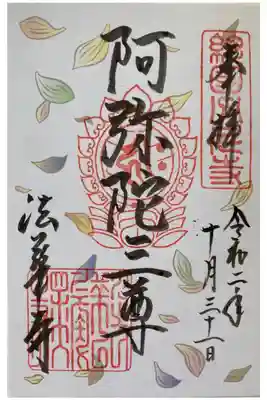 奉拝
令和二年
十月三十一日
阿弥陀三尊
法華寺